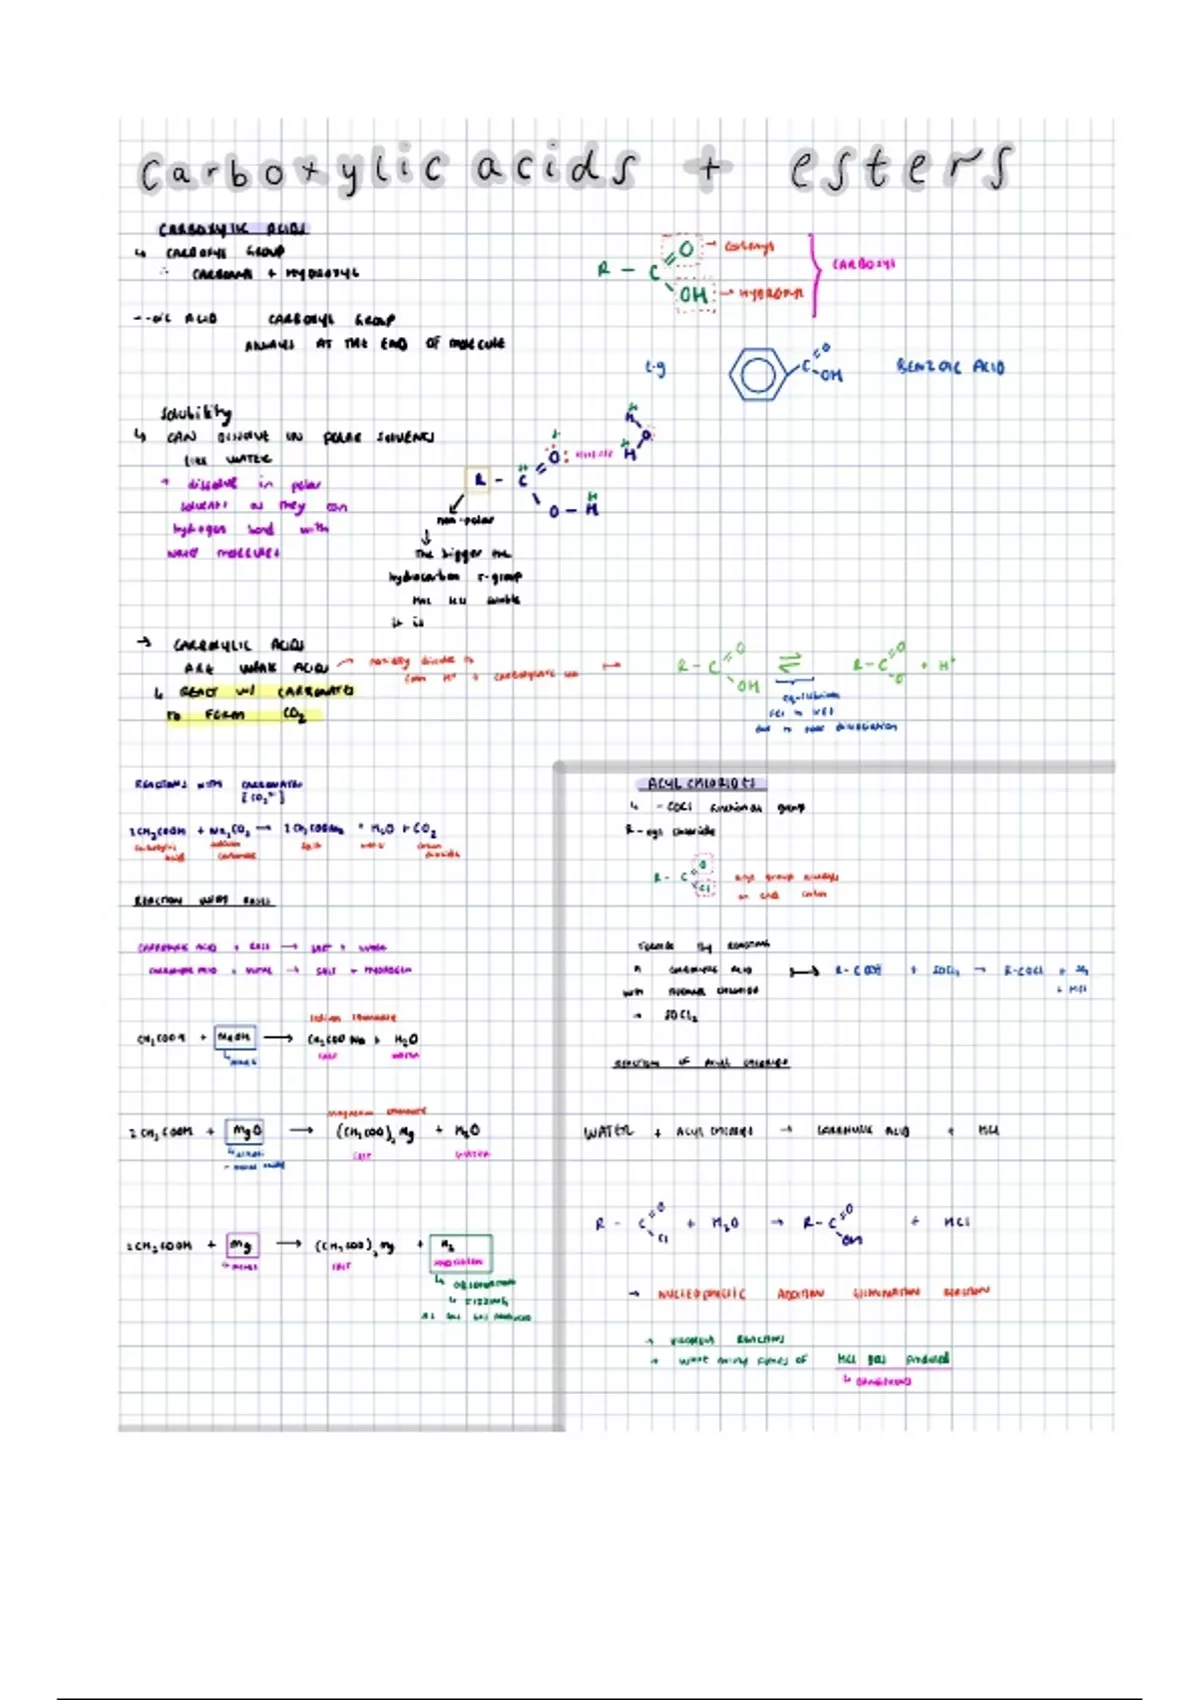 Carboxylic acids + esters
CARBOXYLIC ACIDS
↳ CARBOXYL GROUP
∴ CARBONYL + HYDROXYL
R - C
O → Carbonyl
OH → HYDROXYL
CARBOXYL
--oic ACID CARBOXYL GROUP
ALWAYS AT THE END OF MOLECULE
e.g
C
O
OH
BENZOIC ACID
Solubility
↳ CAN DISSOLVE IN POLAR SOLVENTS
LIKE WATER
→ dissolve in polar
solvents as they can
hydrogen bond with
water molecules
R - C
O
O - H
H
O
H
non-polar
The bigger the
hydrocarbon r-group
the less soluble
it is
→ CARBOXYLIC ACIDS
ARE WEAK ACIDS
↳ REACT W/ CARBONATES
TO FORM CO₂
R - C
O
OH
⇌
R - C
O
O
+ H⁺
equilibrium
REACTIONS WITH CARBONATES
[CO₃²⁻]
2CH₃COOH + Na₂CO₃ → 2CH₃COONa + H₂O + CO₂
carboxylic acid
sodium carbonate
salt
water
carbon dioxide
REACTION WITH BASES
CARBOXYLIC ACID + BASE → SALT + WATER
CARBOXYLIC ACID + METAL → SALT + HYDROGEN
CH₃COOH + NaOH → CH₃COO Na + H₂O
SALT
WATER
2CH₃COOH + MgO → (CH₃COO)₂Mg + H₂O
SALT
WATER
2CH₃COOH + Mg → (CH₃COO)₂Mg + H₂
↳ METAL
SALT
HYDROGEN
↳ OBSERVATION
↳ FIZZING
AS GAS PRODUCED
ACYL CHLORIDES
↳ -COCl functional group
R-oyl chloride
R - C
O
Cl
acyl group always
on end carbon
FORMED By REACTING
A CARBOXYLIC ACID
WITH THIONYL CHLORIDE
→ SOCl₂
R-COOH + SOCl₂ → R-COCl +
+ HCl
REACTION OF ACYL CHLORIDES
WATER + ACYL CHLORIDE → CARBOXYLIC ACID + HCl
R - C
O
Cl
+ H₂O →
R - C
O
OH
+ HCl
→ NUCLEOPHILIC ADDITION ELIMINATION REACTION
→ VIGOROUS REACTIONS
→ white misty fumes of HCl gas produced
↳ DANGEROUS